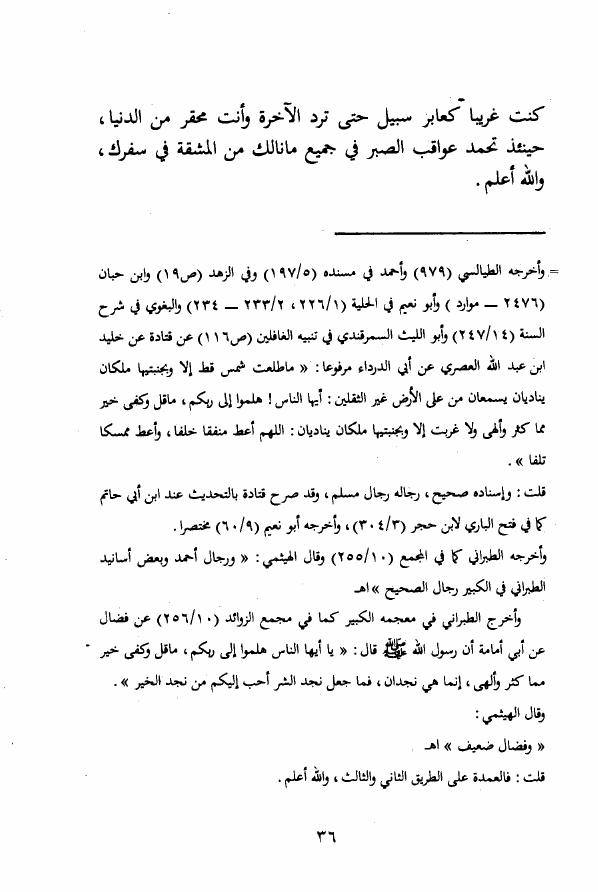 كنت غريبا كعابر سبيل حتى ترد الآخرة وأنت محقر من الدنيا،
حينئذ تحمد عواقب الصبر في جميع مانالك من المشقة في سفرك،
والله أعلم.
= وأخرجه الطيالسي (٩٧٩) وأحمد في مسنده (١٩٧/٥) وفي الزهد (ص١٩) وابن حبان
(٢٤٧٦ ــ موارد) وأبو نعيم في الحلية (٢٢٦/١، ٢٣٣/٢ ــ ٢٣٤) والبغوي في شرح
السنة (٢٤٧/١٤) وأبو الليث السمرقندي في تنبيه الغافلين (ص١١٦) عن قتادة عن خليد
ابن عبد الله العصري عن أبي الدرداء مرفوعا: « ماطلعت شمس قط إلا وبجنبتيها ملكان
يناديان يسمعان من على الأرض غير الثقلين: أيها الناس! هلموا إلى ربكم، ماقل وكفى خير
مما كثر وألهى ولا غربت إلا وبجنبتيها ملكان يناديان: اللهم أعط منفقا خلفا، وأعط ممسكا
تلفا ».
قلت: وإسناده صحيح، رجاله رجال مسلم، وقد صرح قتادة بالتحديث عند ابن أبي حاتم
كما في فتح الباري لابن حجر (٣٠٤/٣)، وأخرجه أبو نعيم (٦٠/٩) مختصرا.
وأخرجه الطبراني كما في المجمع (٢٥٥/١٠) وقال الهيثمي: « ورجال أحمد وبعض أسانيد
الطبراني في الكبير رجال الصحيح » اهـ
وأخرج الطبراني في معجمه الكبير كما في مجمع الزوائد (٢٥٦/١٠) عن فضال
عن أبي أمامة أن رسول الله ﷺ قال: « يا أيها الناس هلموا إلى ربكم، ماقل وكفى خير
مما كثر وألهى، إنما هي نجدان، فما جعل نجد الشر أحب إليكم من نجد الخير ».
وقال الهيثمي:
« وفضال ضعيف » اهـ
قلت: فالعمدة على الطريق الثاني والثالث، والله أعلم.
٣٦